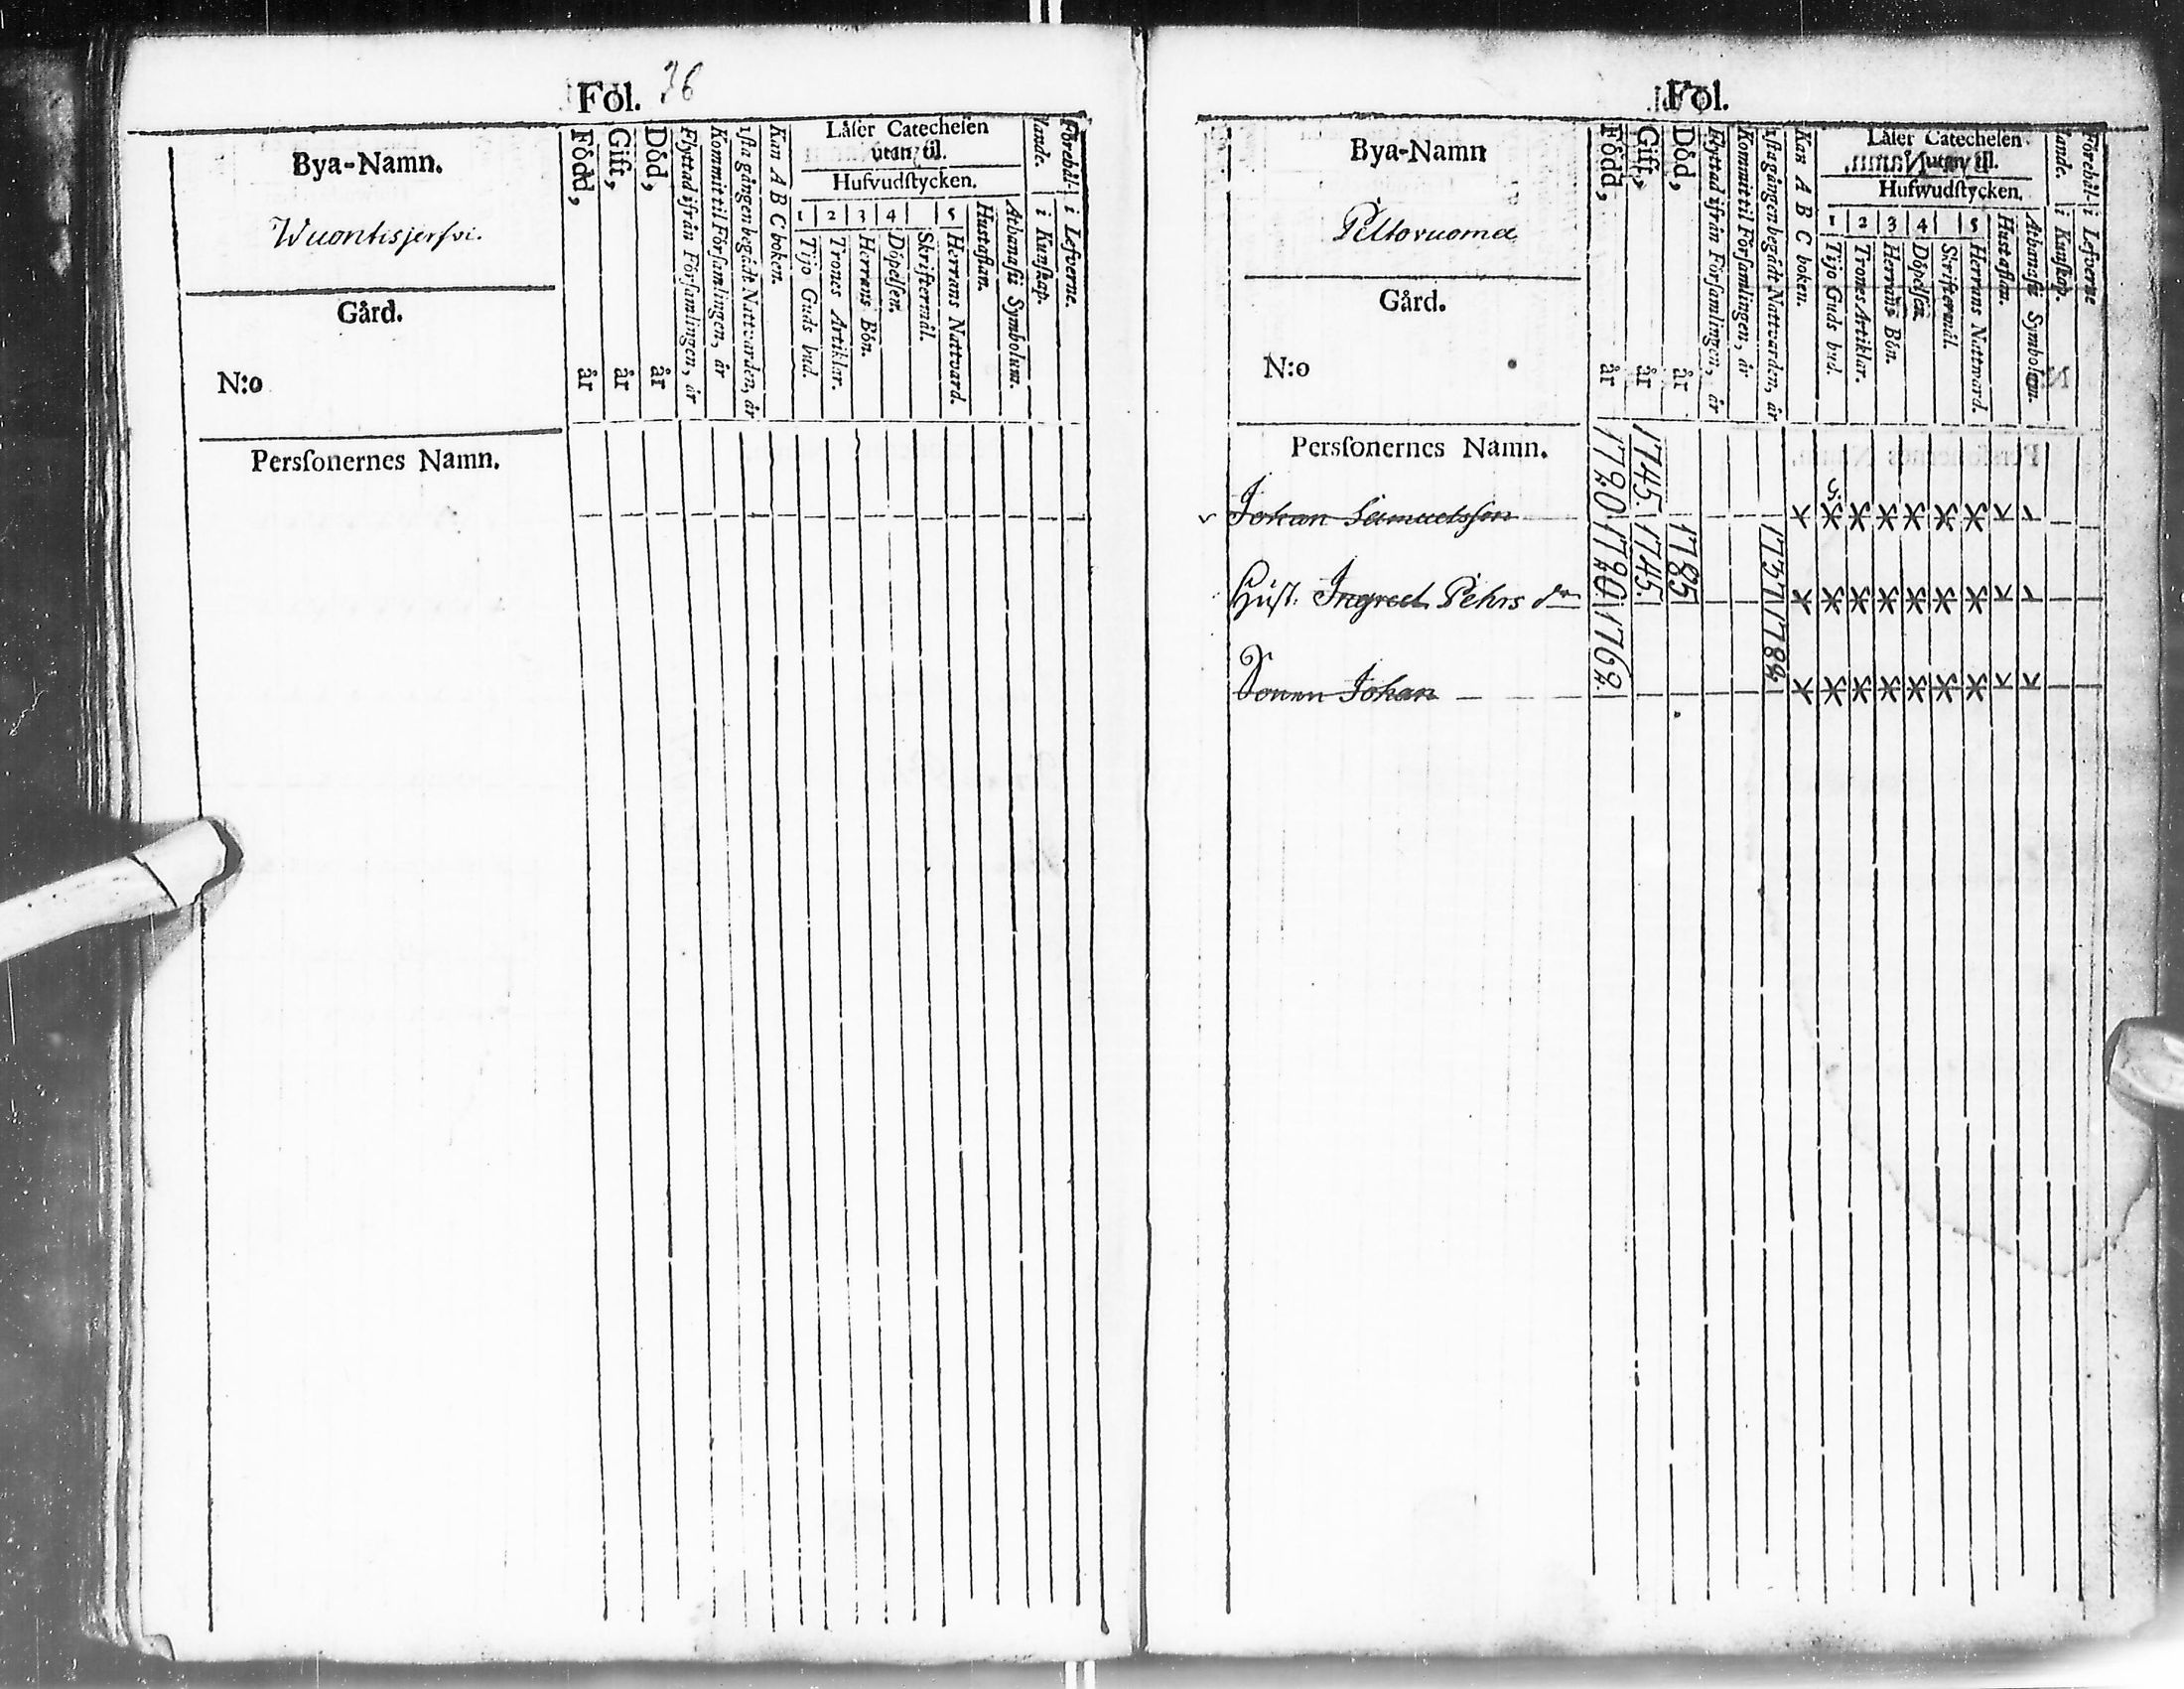 Fol. 36
Bya-Namn.
Wuontisjerfvi.
Gård.
N:o
Persſonernes Namn.
Född, år
Gift, år
Död, år
Flyttad ifrån Förſamlingen, år
Kommit til Förſamlingen, år
1ſta gången begådt Nattvarden, år
Kan A B C boken.
Låſer Catecheſen
utan til.
Hufvudſtycken.
1 2 3 4 5
Tijo Guds bud.
Trones Artiklar.
Herrans Bön.
Döpelſen.
Skriftermål.
Herrans Nattvard.
Huſtaflan.
Athanaſii Symbolum.
Förehål-
lande.
i Kunſkap.
i Lefverne.
Fol.
Bya-Namn
Peltovuoma
Gård.
N:o
Persſonernes Namn.
Född, år
Gift, år
Död, år
Flyttad ifrån Förſamlingen, år
Kommit til Förſamlingen, år
1ſta gången begådt Nattvarden, år
Kan A B C boken.
Låſer Catecheſen
utan till.
Hufwudſtycken.
1 2 3 4 5
Tijo Guds bud.
Trones Artiklar.
Herrans Bön.
Döpelſen.
Skriftermål.
Herrans Nattward.
Huſtaflan.
Athanaſii Symbolum.
Förehål-
lande.
i Kunſkap.
i Lefverne
Johan Samuelsſon 1720 1745
Huſt. Ingred Pehrs dr 1720 1745. 1785 1737
Sonen Johan 1762. 1782